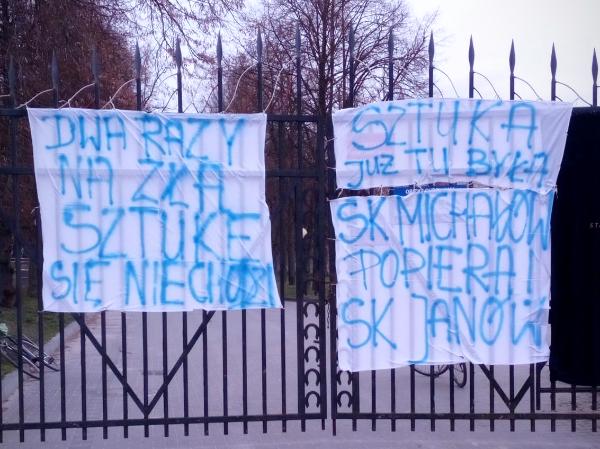 DWA RAZY
NA ZŁĄ
SZTUKĘ
SIĘ NIECHODZI
SZTUKA
JUŻ TU BYŁA
SK MICHAŁÓW
POPIERA
SK JANÓW